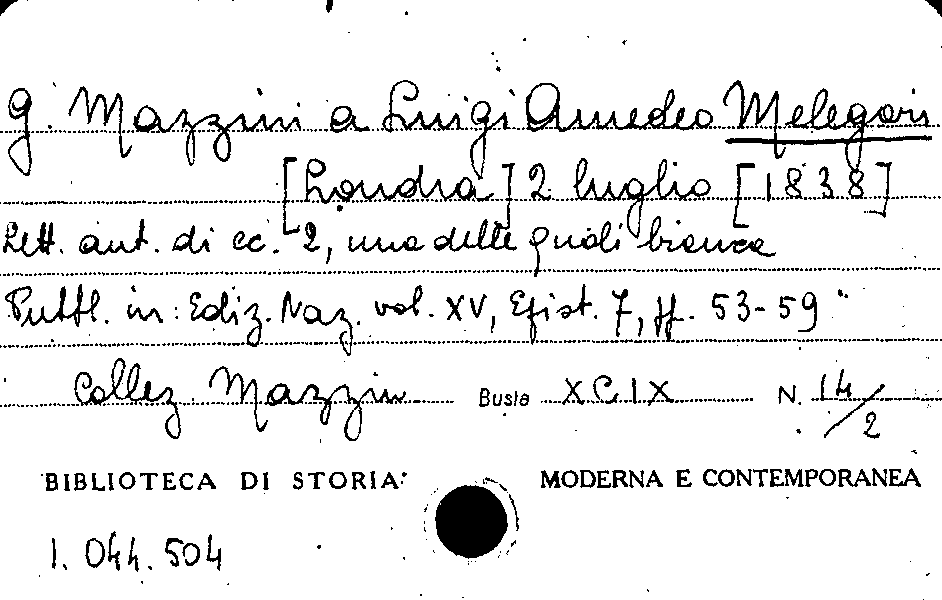 G. Mazzini a Luigi Amedeo Melegari
[Londra] 2 luglio [1838]
Lett. aut. di cc. 2, una delle quali bianca
Pubbl. in: Ediz. Naz. vol. XV, Epist. 7, pp. 53-59
Collez. Mazzini Busta XCIX N. 14/2
BIBLIOTECA DI STORIA MODERNA E CONTEMPORANEA
1.044.504